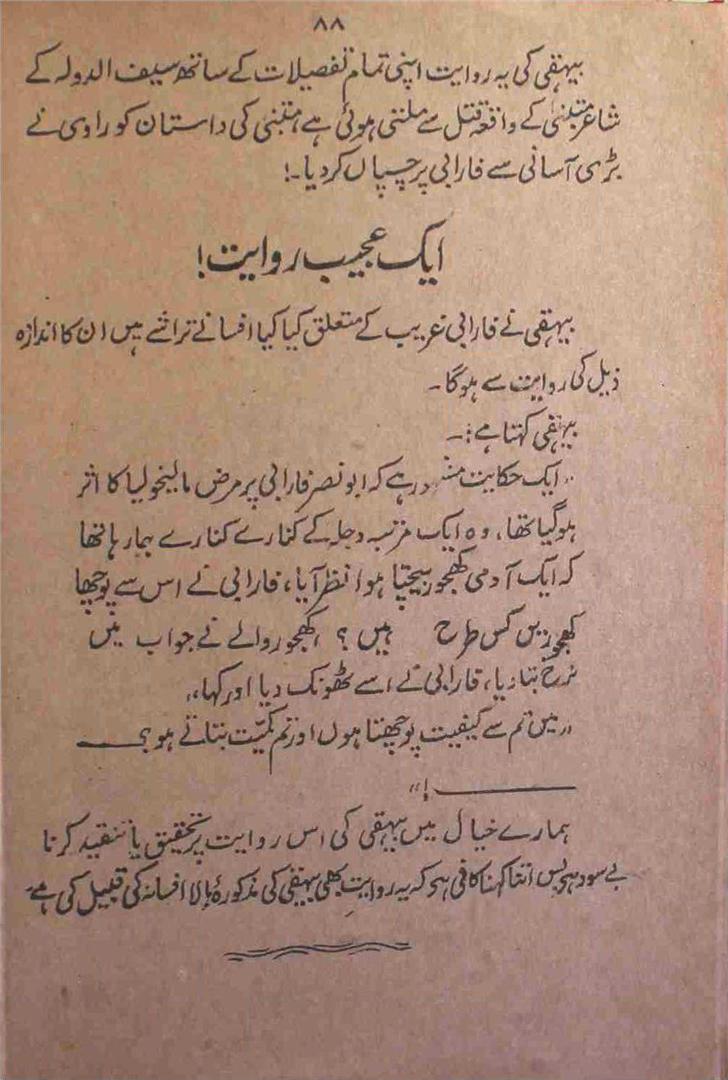 ۸۸
بیہقی کی یہ روایت اپنی تمام تفصیلات کے ساتھ سیف الدولہ کے
شاعر متنبیٰ کے واقعۂ قتل سے ملتی ہوئی ہے متنبیٰ کی داستان کو راوی نے
بڑی آسانی سے فارابی پر چسپاں کر دیا۔!
ایک عجیب روایت!
بیہقی نے فارابی غریب کے متعلق کیا کیا افسانے تراشے ہیں ان کا اندازہ
ذیل کی روایت سے ہوگا۔
بیہقی کہتا ہے:۔
"ایک حکایت مشہور ہے کہ ابو نصر فارابی پر مرض مالیخولیا کا اثر
ہو گیا تھا، وہ ایک مرتبہ دجلہ کے کنارے کنارے جا رہا تھا
کہ ایک آدمی کھجور بیچتا ہوا نظر آیا، فارابی نے اس سے پوچھا
کھجوریں کس طرح ہیں؟ کھجور والے نے جواب میں
نرخ بتا دیا، فارابی نے اسے ٹھونک دیا اور کہا،،
"میں تم سے کیفیت پوچھتا ہوں اور تم کمیّت بتاتے ہو؟ ——
——— !"
ہمارے خیال میں بیہقی کی اس روایت پر تحقیق یا تنقید کرنا
بے سود ہی بس اتنا کہنا کافی ہی کہ یہ روایت بھی بیہقی کی مذکورۂ بالا افسانہ کی قبیل کی ہے۔